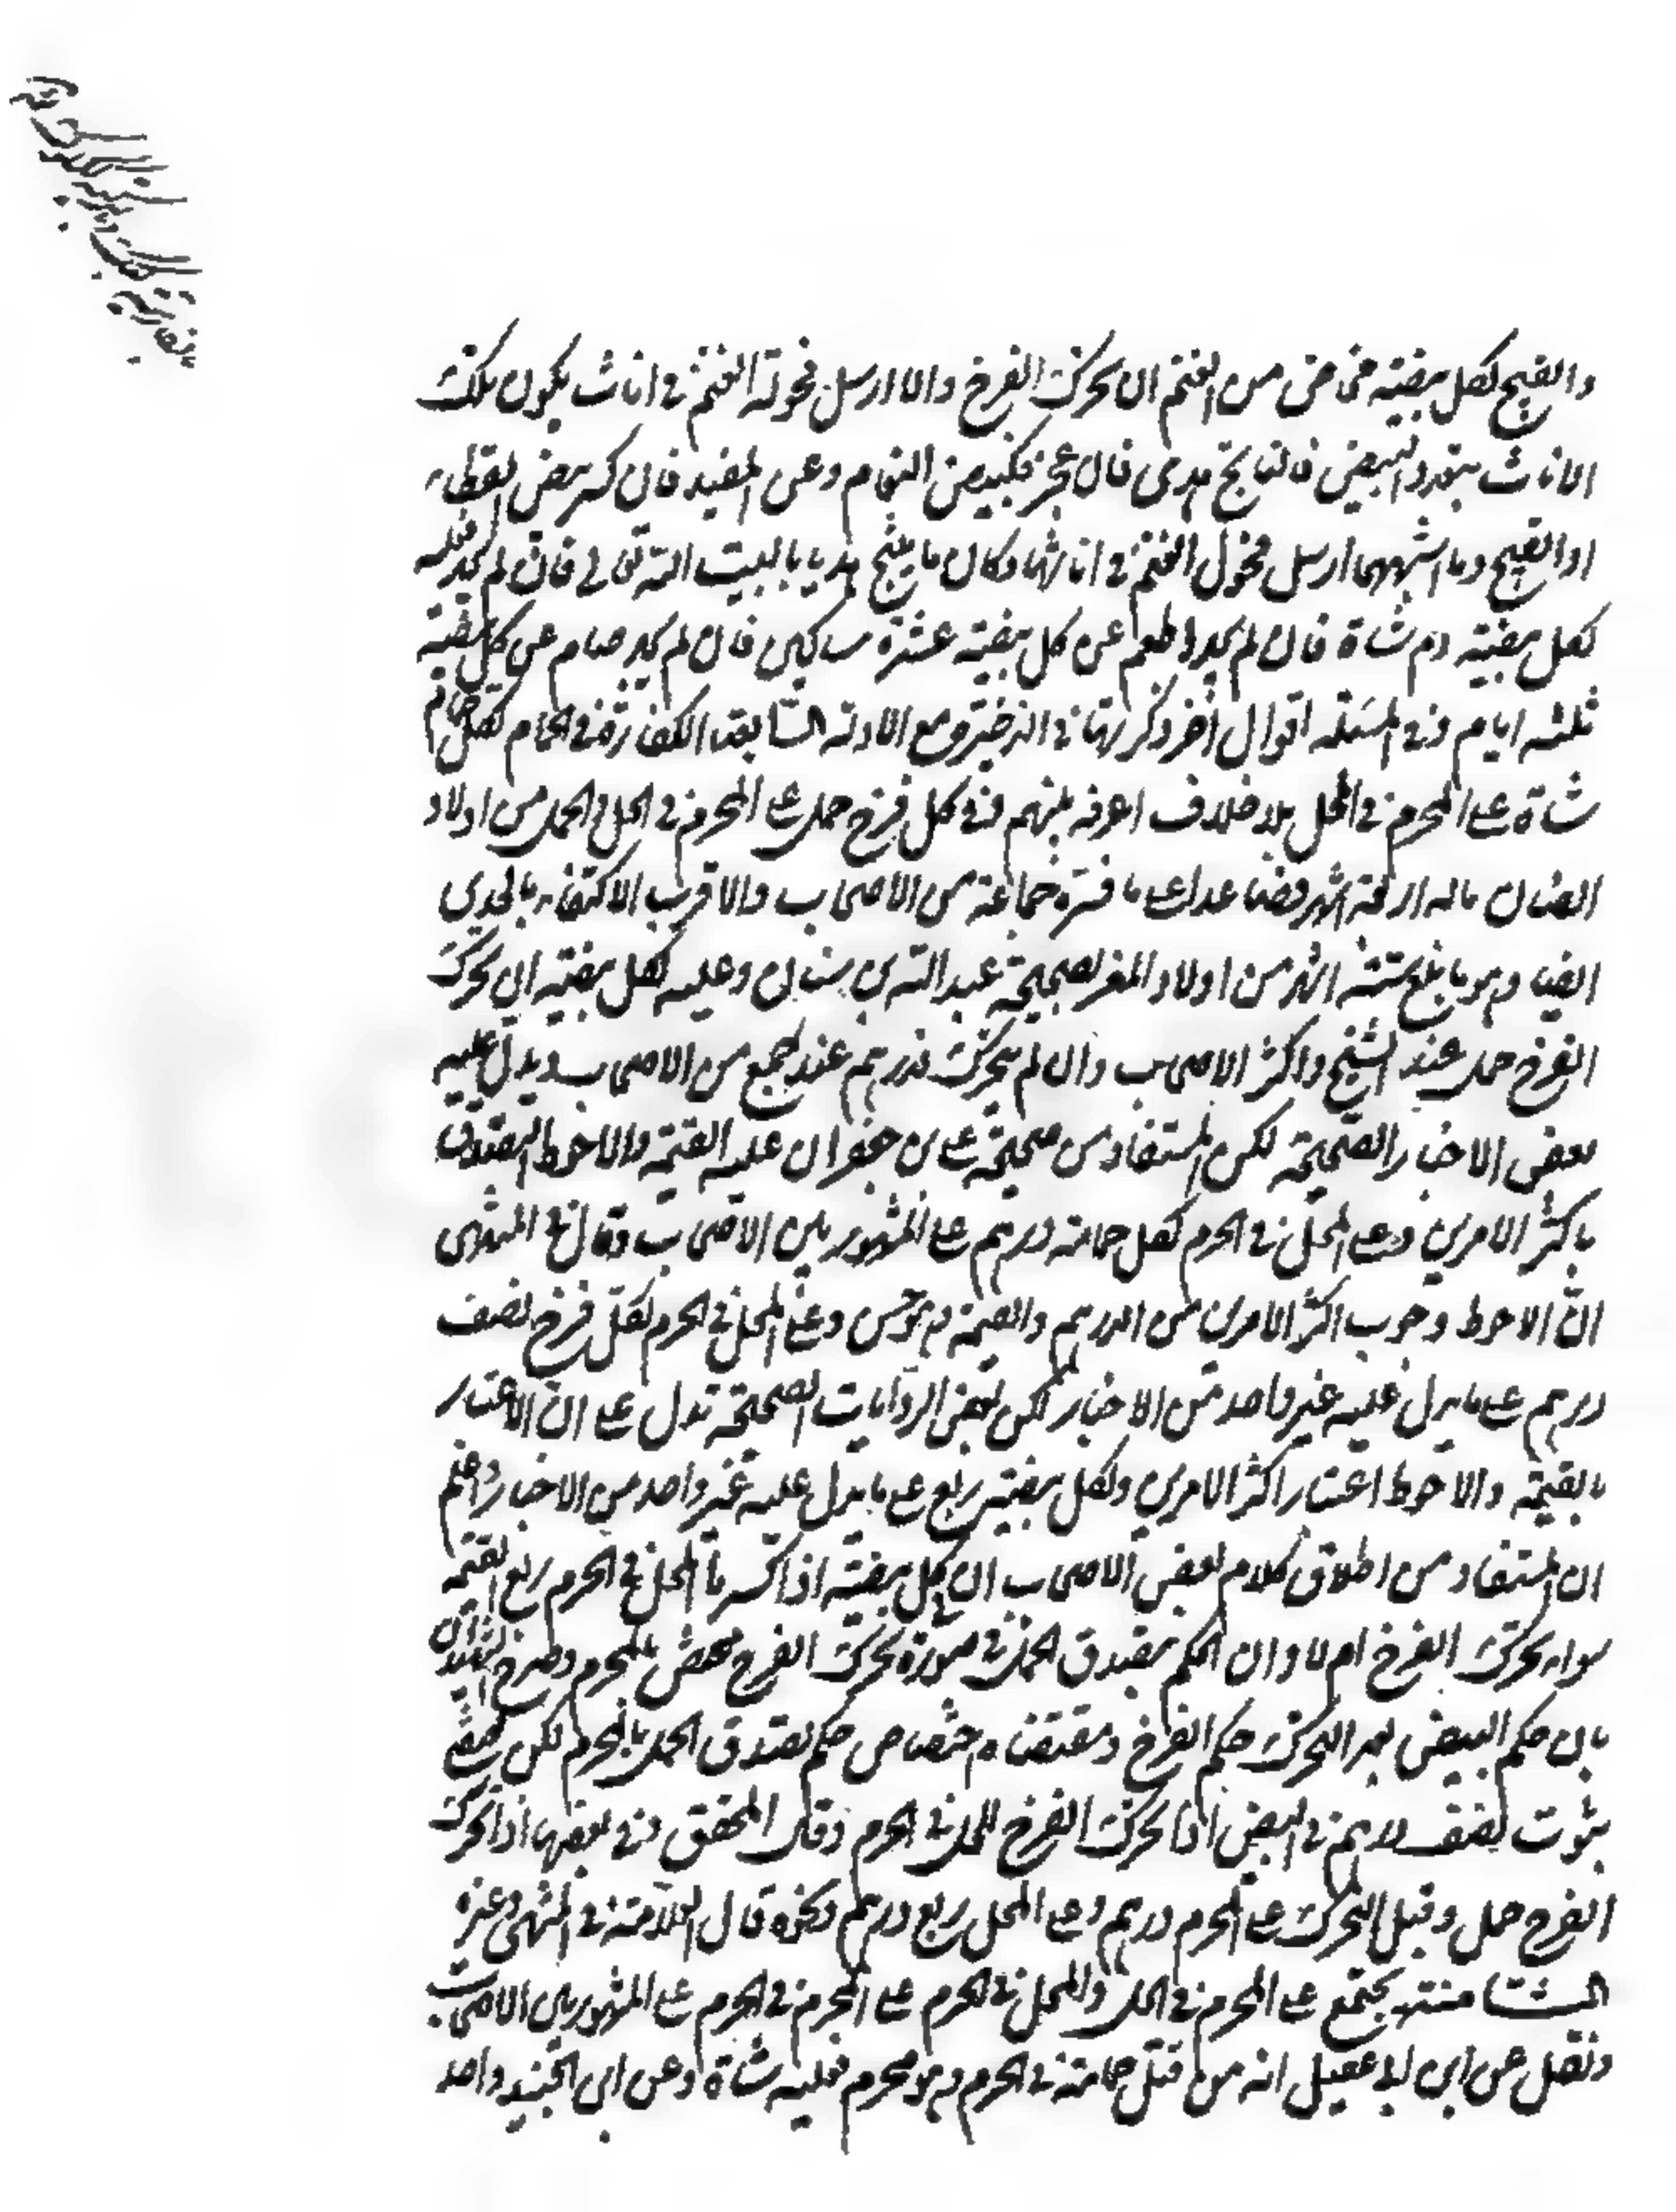 والقبج لكل بيضة مخاض من الغنم ان تحرك الفرخ والا ارسل فحولة الغنم في اناث يكون تلك
الاناث بعدد البيض فالناتج هدي فان عجز فكبيض النعام وعن المفيد فان كسر بيض القطاء
او القبج وما اشبههما ارسل فحول الغنم في اناثها وكان ما ينتج هديا لبيت الله تعالى فان لم يجد فعليه
لكل بيضة دم شاة فان لم يجد اطعم عن كل بيضة عشرة مساكين فان لم يجد صام عن كل بيضة
ثلثه ايام وفي المسئلة اقوال أخر ذكرتها في الذخيرة مع الادلة السابقة الكفارة في الحمام لكل حمام
شاة على المحرم في الحل بلا خلاف اعرفه بينهم وفي كل فرخ حمل على المحرم في الحل والحمل من اولاد
الضان ماله اربعة اشهر فصاعدا على ما فسره جماعة من الاصحاب والاقرب الاكتفاء بالجدي
ايضا وهو ما بلغ ستة اشهر من اولاد المعز لصحيحة عبد الله بن سنان وعليه لكل بيضة ان تحرك
الفرخ حمل عند الشيخ واكثر الاصحاب وان لم يتحرك فدرهم عند جمع من الاصحاب ويدل عليه
بعض الاخبار الصحيحة لكن المستفاد من صحيحة علي بن جعفر ان عليه القيمة والاحوط التصدق
باكثر الامرين وعلى المحل في الحرم لكل حمامة درهم على المشهور بين الاصحاب وقال في المنتهى
انّ الاحوط وجوب اكثر الامرين من الدرهم والقيمة وهو حسن وعلى المحل في الحرم لكل فرخ نصف
درهم على ما يدل عليه غير واحد من الاخبار لكن بعض الروايات الصحيحة تدل على انّ الاعتبار
بالقيمة والاحوط اعتبار اكثر الامرين ولكل بيضة ربع على ما يدل عليه غير واحد من الاخبار واعلم
ان المستفاد من اطلاق كلام بعض الاصحاب ان في كل بيضة اذا كسرها المحل في الحرم ربع القيمة
سواء تحرك الفرخ ام لا وان الحكم بتصدق الحمل في صورة تحرك الفرخ مختص بالمحرم وصرح الشهيدان
بان حكم البيض بعد التحرك حكم الفرخ ومقتضاه اختصاص حكم تصدق الحمل بالمحرم لكن
بثبوت نصف درهم في البيض اذا تحرك الفرخ للمحل في الحرم وقال المحقق وفي بيضها اذا تحرك
الفرخ حمل وقبل التحرك على المحرم درهم وعلى المحل ربع درهم ونحوه قال العلامة في المنتهى وغيره
الستامنته يجتمع على المحرم في الحل والمحل في الحرم على المحرم في الحرم على المشهور بين الاصحاب
ونقل عن ابن ابي عقيل انه من قتل حمامة في الحرم وهو محرم فعليه شاة وعن ابن الجنيد واحد